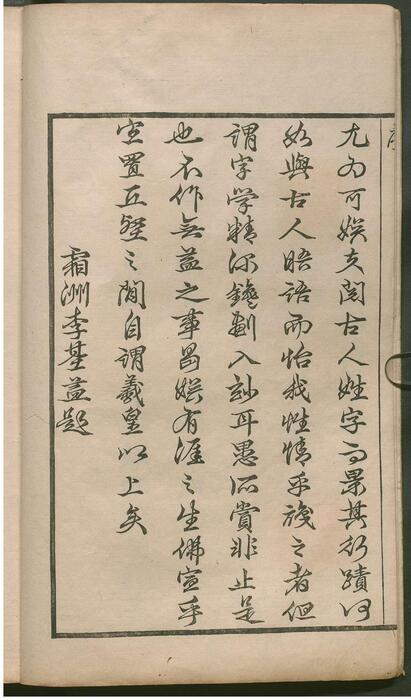 尤為可娛夫閱古人姓字而景其行蹟何
如與古人晤語而怡我性情乎之者但
謂字學精深鐫入玅耳愚所賞非止是
也不作無益之事曷娛有涯之生宜乎
置丘壑之間自謂羲皇以上矣
霜洲李基益題